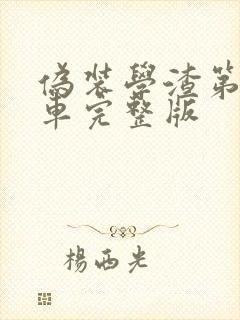 偽裝學渣第
車完整版
楊西光